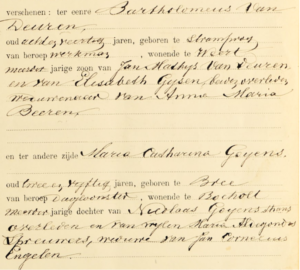 verschenen: ter eenre Bartholomeus Van
Deuren,
oud jaren, geboren te Stramproy
van beroep werkman, wonende te Weert
meerder jarige zoon van Jan Mathys Van Deuren
en van Elisabeth Gysen, beiden overleden
weduwenaar van Anna Maria
Beeren,
en ter andere zijde Maria Catharina Goyens.
oud twee en vijftig jaren, geboren te Bree
van beroep dagloonster, wonende te Bocholt
meerder jarige dochter van Nicolaas Goyens
overleden en van Maria
Sprouwers, weduwe van Jan Cornelius
Engelen